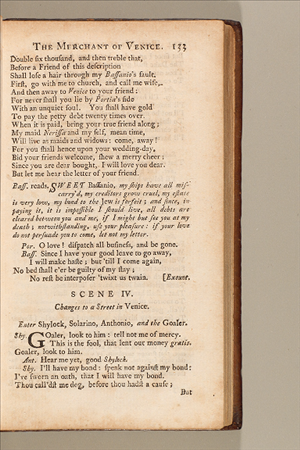 The Merchant of Venice. 133
Double six thousand, and then treble that,
Before a Friend of this description
Shall lose a hair through my Bassanio's fault.
First, go with me to church, and call me wife,
And then away to Venice to your friend:
For never shall you lie by Portia's side
With an unquiet soul. You shall have gold
To pay the petty debt twenty times over.
When it is paid, bring your true friend along;
My maid Nerissa and my self, mean time,
Will live as maids and widows: come, away!
For you shall hence upon your wedding-day,
Bid your friends welcome, shew a merry cheer:
Since you are dear bought, I will love you dear.
But let me hear the letter of your friend.
Bass. reads. SWEET Bassanio, my ships have all mis-
carry'd, my creditors grow cruel, my estate
is very low, my bond to the Jew is forfeit; and since, in
paying it, it is impossible I should live, all debts are
cleared between you and me, if I might but see you at my
death; notwithstanding, use your pleasure: if your love
do not persuade you to come, let not my letter.
Por. O love! dispatch all business, and be gone.
Bass. Since I have your good leave to go away,
I will make haste; but 'till I come again,
No bed shall e'er be guilty of my stay;
No rest be interposer 'twixt us twain. [Exeunt.
SCENE IV.
Changes to a Street in Venice.
Enter Shylock, Solarino, Anthonio, and the Goaler.
Shy. GOaler, look to him: tell not me of mercy.
This is the fool, that lent out money gratis.
Goaler, look to him.
Ant. Hear me yet, good Shylock.
Shy. I'll have my bond: speak not against my bond:
I've sworn an oath, that I will have my bond.
Thou call'dst me dog, before thou hadst a cause;
But